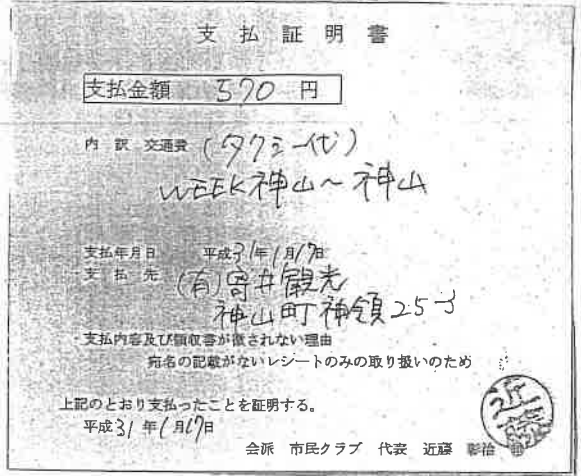 支払証明書
支払金額 570 円
内訳 交通費 (タクシー代)
WEEK神山～神山
支払年月日 平成31年1月17日
支払先 (有)寄井観光
神山町神領25-3
支払内容及び領収書が徴されない理由
宛名の記載がないレシートのみの取り扱いのため
上記のとおり支払ったことを証明する。
平成31年1月17日
会派 市民クラブ 代表 近藤 彰治
近藤